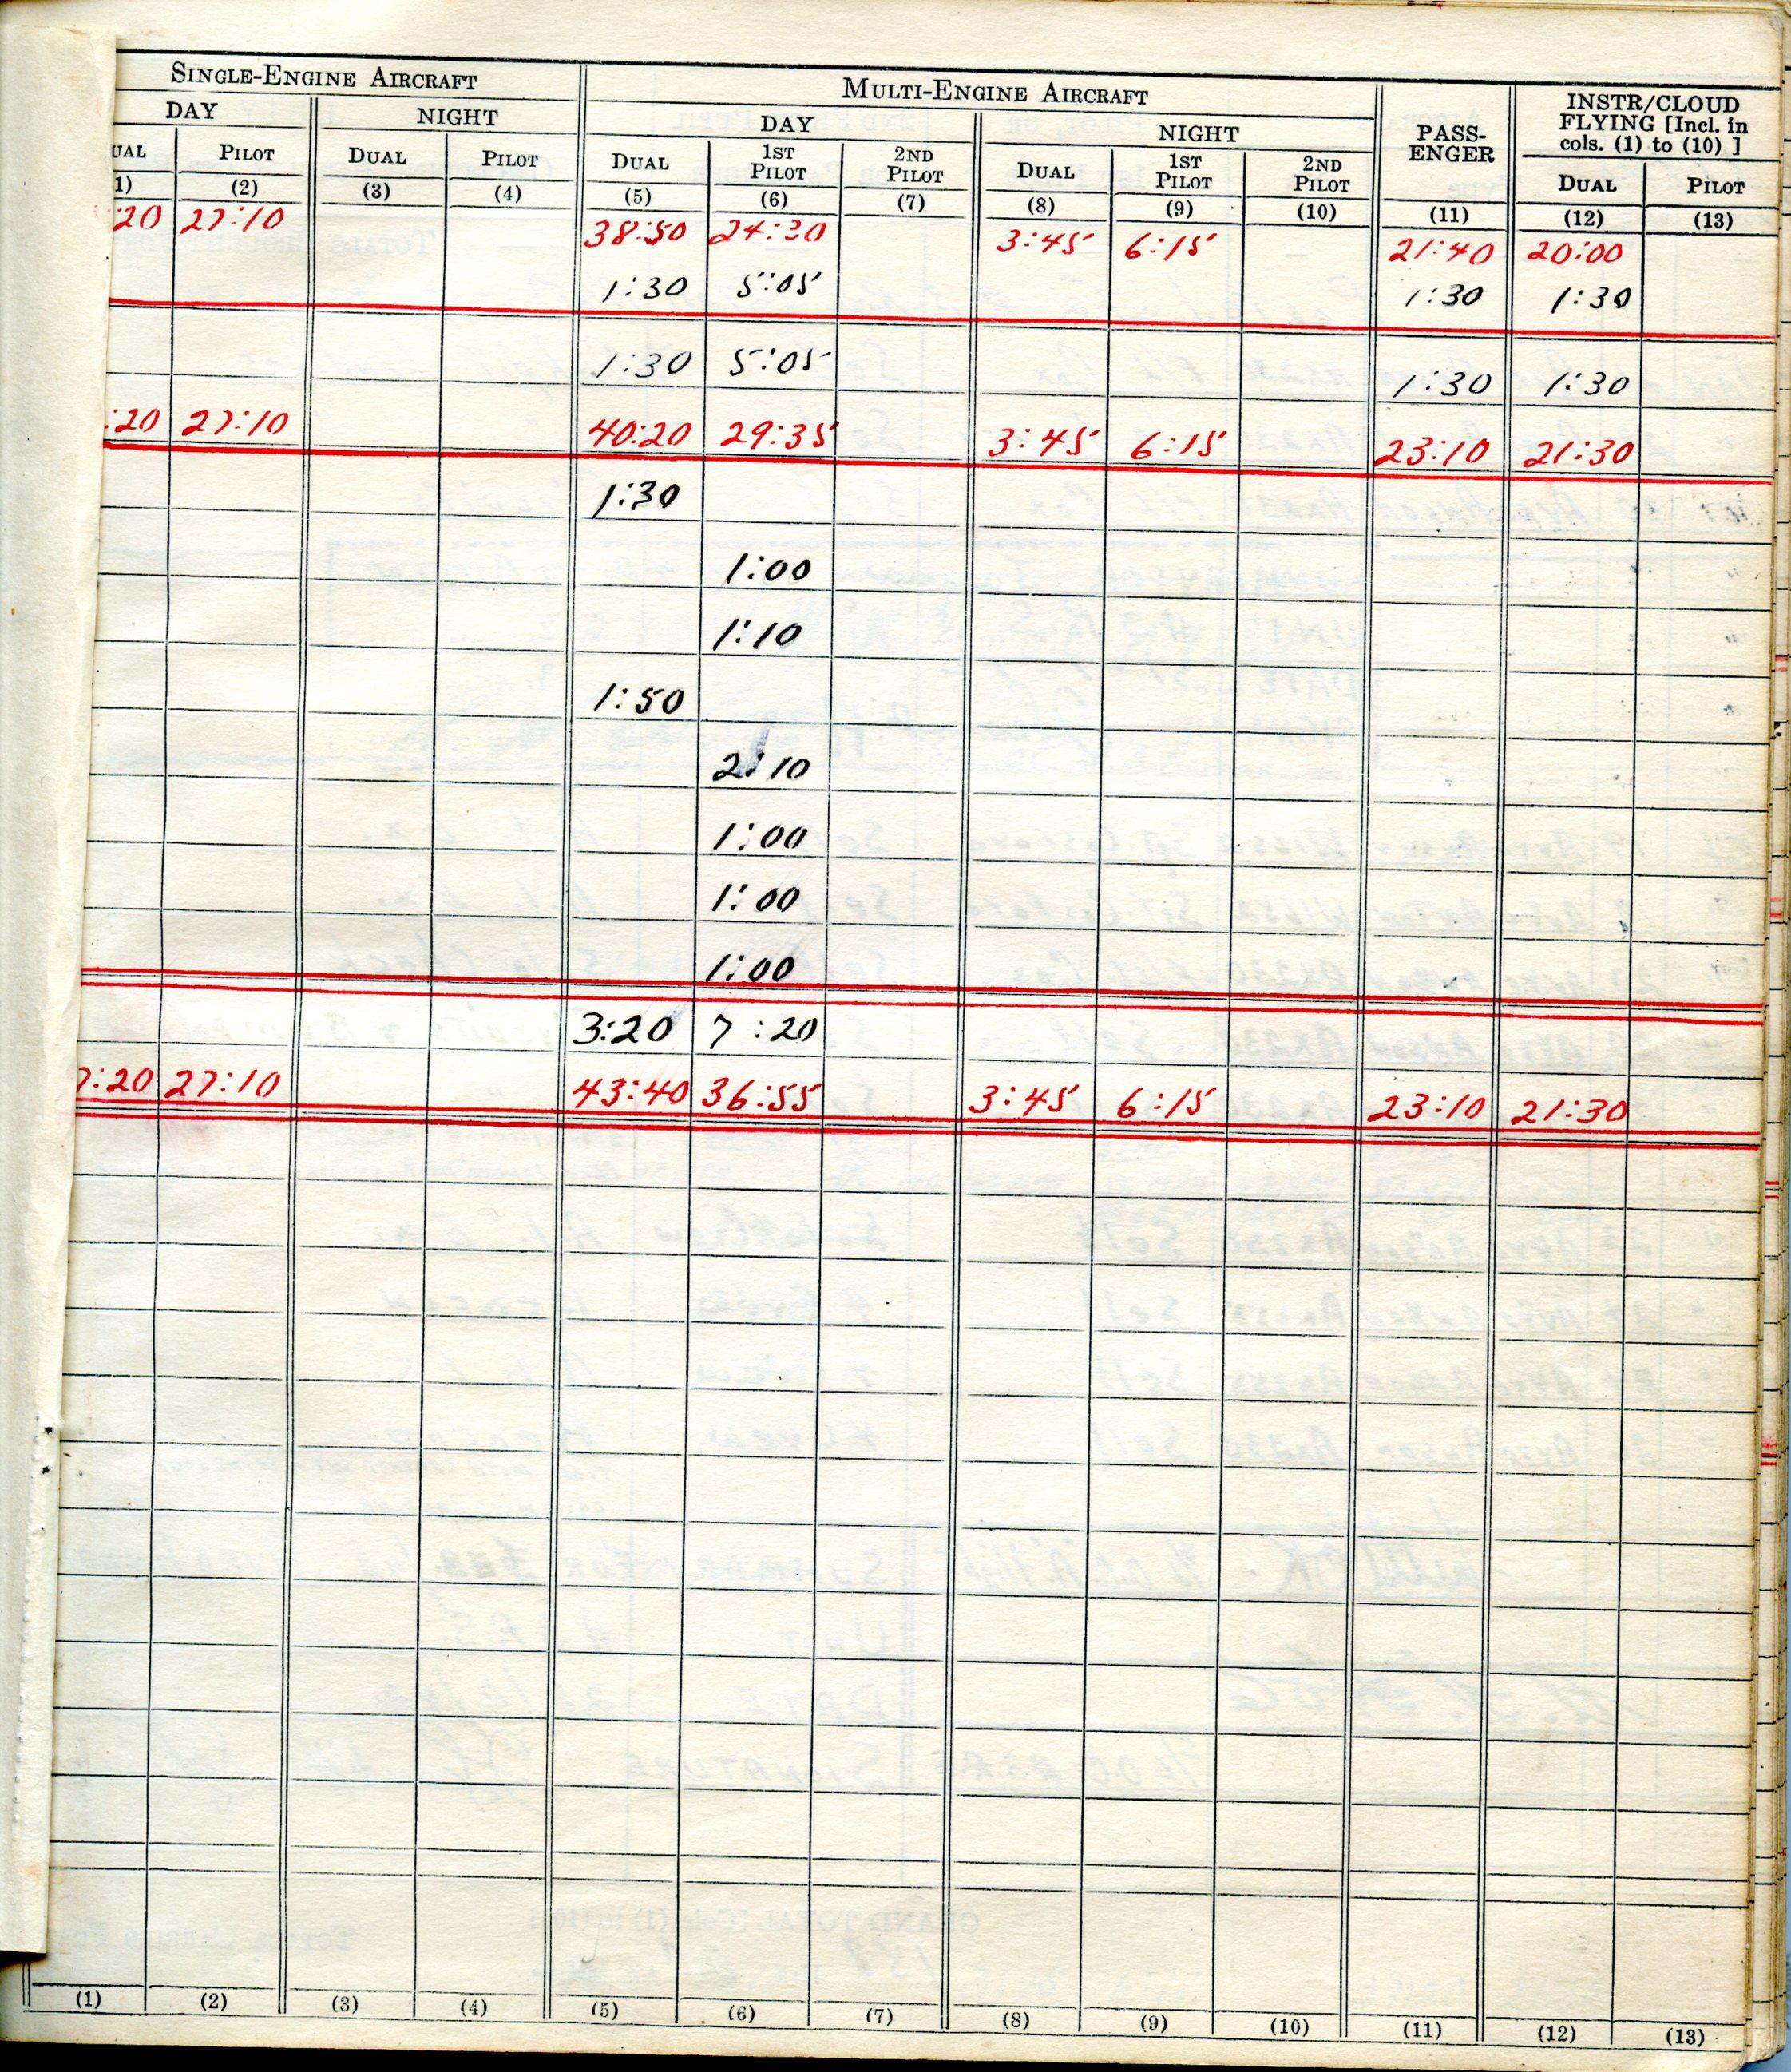 SINGLE-ENGINE AIRCRAFT MULTI-ENGINE AIRCRAFT PASS-ENGER INSTR/CLOUD FLYING [Incl. in cols. (1) to (10) ]
DAY NIGHT DAY NIGHT
UAL PILOT DUAL PILOT DUAL 1ST PILOT 2ND PILOT DUAL 1ST PILOT 2ND PILOT DUAL PILOT
1) (2) (3) (4) (5) (6) (7) (8) (9) (10) (11) (12) (13)
:20 27:10 38:50 24:30 3:45 6:15 21:40 20:00
1:30 5:05 1:30 1:30
1:30 5:05 1:30 1:30
:20 27:10 40:20 29:35 3:45 6:15 23:10 21:30
1:30
1:00
1:10
1:50
2:10
1:00
1:00
1:00
3:20 7:20
7:20 27:10 43:40 36:55 3:45 6:15 23:10 21:30
(1) (2) (3) (4) (5) (6) (7) (8) (9) (10) (11) (12) (13)